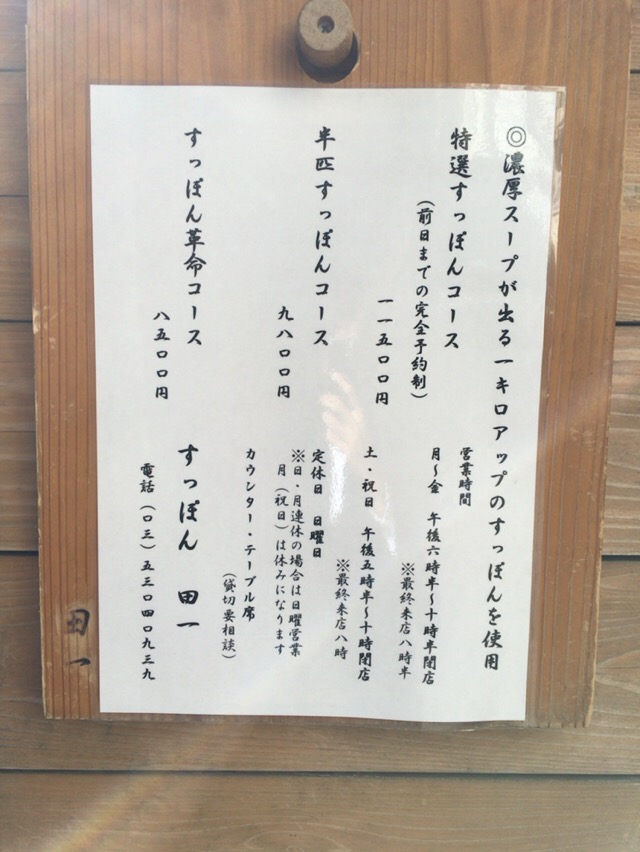 ◎濃厚スープが出る一キロアップのすっぽんを使用
特選すっぽんコース
（前日までの完全予約制）
一一五〇〇円
半匹すっぽんコース
九八〇〇円
すっぽん革命コース
八五〇〇円
営業時間
月〜金　午後六時半〜十時半閉店
※最終来店八時半
土・祝日　午後五時半〜十時閉店
※最終来店八時
定休日　日曜日
※日・月連休の場合は日曜営業
月（祝日）は休みになります
カウンター・テーブル席
（貸切要相談）
すっぽん　田一
電話（〇三）五三〇四〇九三九
田一